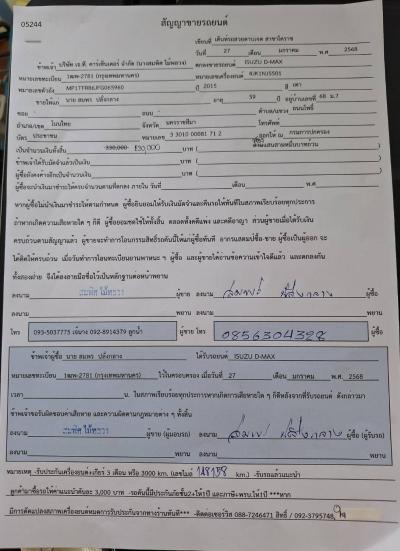 05244
สัญญาขายรถยนต์
เขียนที่ เต็นท์รถสวยดาบเจต สาขาโคราช
วันที่ 27 เดือน มกราคม พ.ศ 2568
ข้าพเจ้า บริษัท เจ.ที. คาร์เซ็นเตอร์ จำกัด (นางสมพิศ ไม้หลวง) ตกลงขายรถยนต์ ISUZU D-MAX
หมายเลขทะเบียน 1ฒพ-2781 (กรุงเทพมหานคร) หมายเลขเครื่องยนต์
หมายเลขตัวถัง MP1TFR86JFG065960 ปี 2015 สี เทา
ขายให้แก่ นาย สมพร ปลั่งกลาง อายุ 59 ปี อยู่บ้านเลขที่ 68 ม.7
ซอย ถนน ตำบล/แขวง ถนนโพธิ์
อำเภอ/เขต โนนไทย จังหวัด นครราชสีมา โทรศัพท์
บัตร ประชาชน หมายเลข 3 3010 00081 71 2 ออกให้ ณ กรมการปกครอง
เป็นจำนวนเงินทั้งสิ้น 330,000 บาท (
ข้าพเจ้าได้รับมัดจำแล้วเป็นเงิน บาท ( )
ผู้ซื้อยังคงค้างอีกเป็นจำนวนเงิน บาท ( )
ผู้ซื้อจะนำเงินมาชำระให้ครบจำนวนตามที่ตกลง ภายใน วันที่ เดือน พ.ศ
หากผู้ซื้อไม่นำเงินมาชำระให้ตามกำหนด ผู้ซื้อยินยอมให้ริบเงินมัดจำและคืนรถให้ทันทีในสภาพเรียบร้อยทุกประการ
ถ้าหากเกิดความเสียหายใด ๆ ก็ดี ผู้ซื้อยอมชดใช้ให้ทั้งสิ้น ตลอดทั้งคดีแพ่ง และคดีอาญา ส่วนผู้ขายเมื่อได้รับเงิน
ครบถ้วนตามสัญญาแล้ว ผู้ขายจะทำการโอนกรรมสิทธิ์รถคันนี้ให้แก่ผู้ซื้อทันที อากรแสตมป์ซื้อ-ขาย ผู้ซื้อเป็นผู้ออก จะ
ทั้งสองฝ่าย จึงได้ลงลายมือชื่อไว้เป็นหลักฐานต่อหน้าพยาน
ลงนาม สมพิศ ไม้หลวง ผู้ขาย ลงนาม ผู้ซื้อ
ลงนาม พยาน ลงนาม พยาน
โทร 093-5037775 092-8914379 ลูกน้ำ ผู้ขาย โทร 0856304328 ผู้ซื้อ
ข้าพเจ้าผู้ซื้อ นาย สมพร ปลั่งกลาง ได้รับรถยนต์ ISUZU D-MAX
หมายเลขทะเบียน 1ฒพ-2781 (กรุงเทพมหานคร) ไว้ในครอบครอง เมื่อวันที่ 27 เดือน มกราคม พ.ศ. 2568
เวลา น. ในสภาพเรียบร้อยทุกประการหากเกิดการเสียหายใด ๆ ก็ดีหลังจากที่รับรถยนต์ ดังกล่าวมา
ข้าพเจ้าขอรับผิดชอบค่าเสียหาย และความผิดตามกฎหมายต่าง ๆ ทั้งสิ้น
ลงนาม สมพิศ ไม้หลวง ผู้ขาย (ผู้มอบรถ) ลงนาม ผู้ซื้อ (ผู้รับรถ)
ลงนาม พยาน ลงนาม พยาน
หมายเหตุ -รับประกันเครื่องยนต์+เกียร์ 3 เดือน หรือ 3000 km. (เลขไมล์ 148158 km.) -รับรถแล้วแนะนำ
ลูกค้ามาซื้อรถให้ค่าแนะนำคันละ 3,000 บาท -รถคันนี้มีประกันภัยชั้น2+ให้1ปี และภาษี+พรบ.ให้1ปี ***หาก
มีการดัดแปลงสภาพเครื่องยนต์หมดการรับประกันจากทางร้านทันที*** -ติดต่อเซอร์วิส 088-7246471 สิทธิ์ / 092-3795748